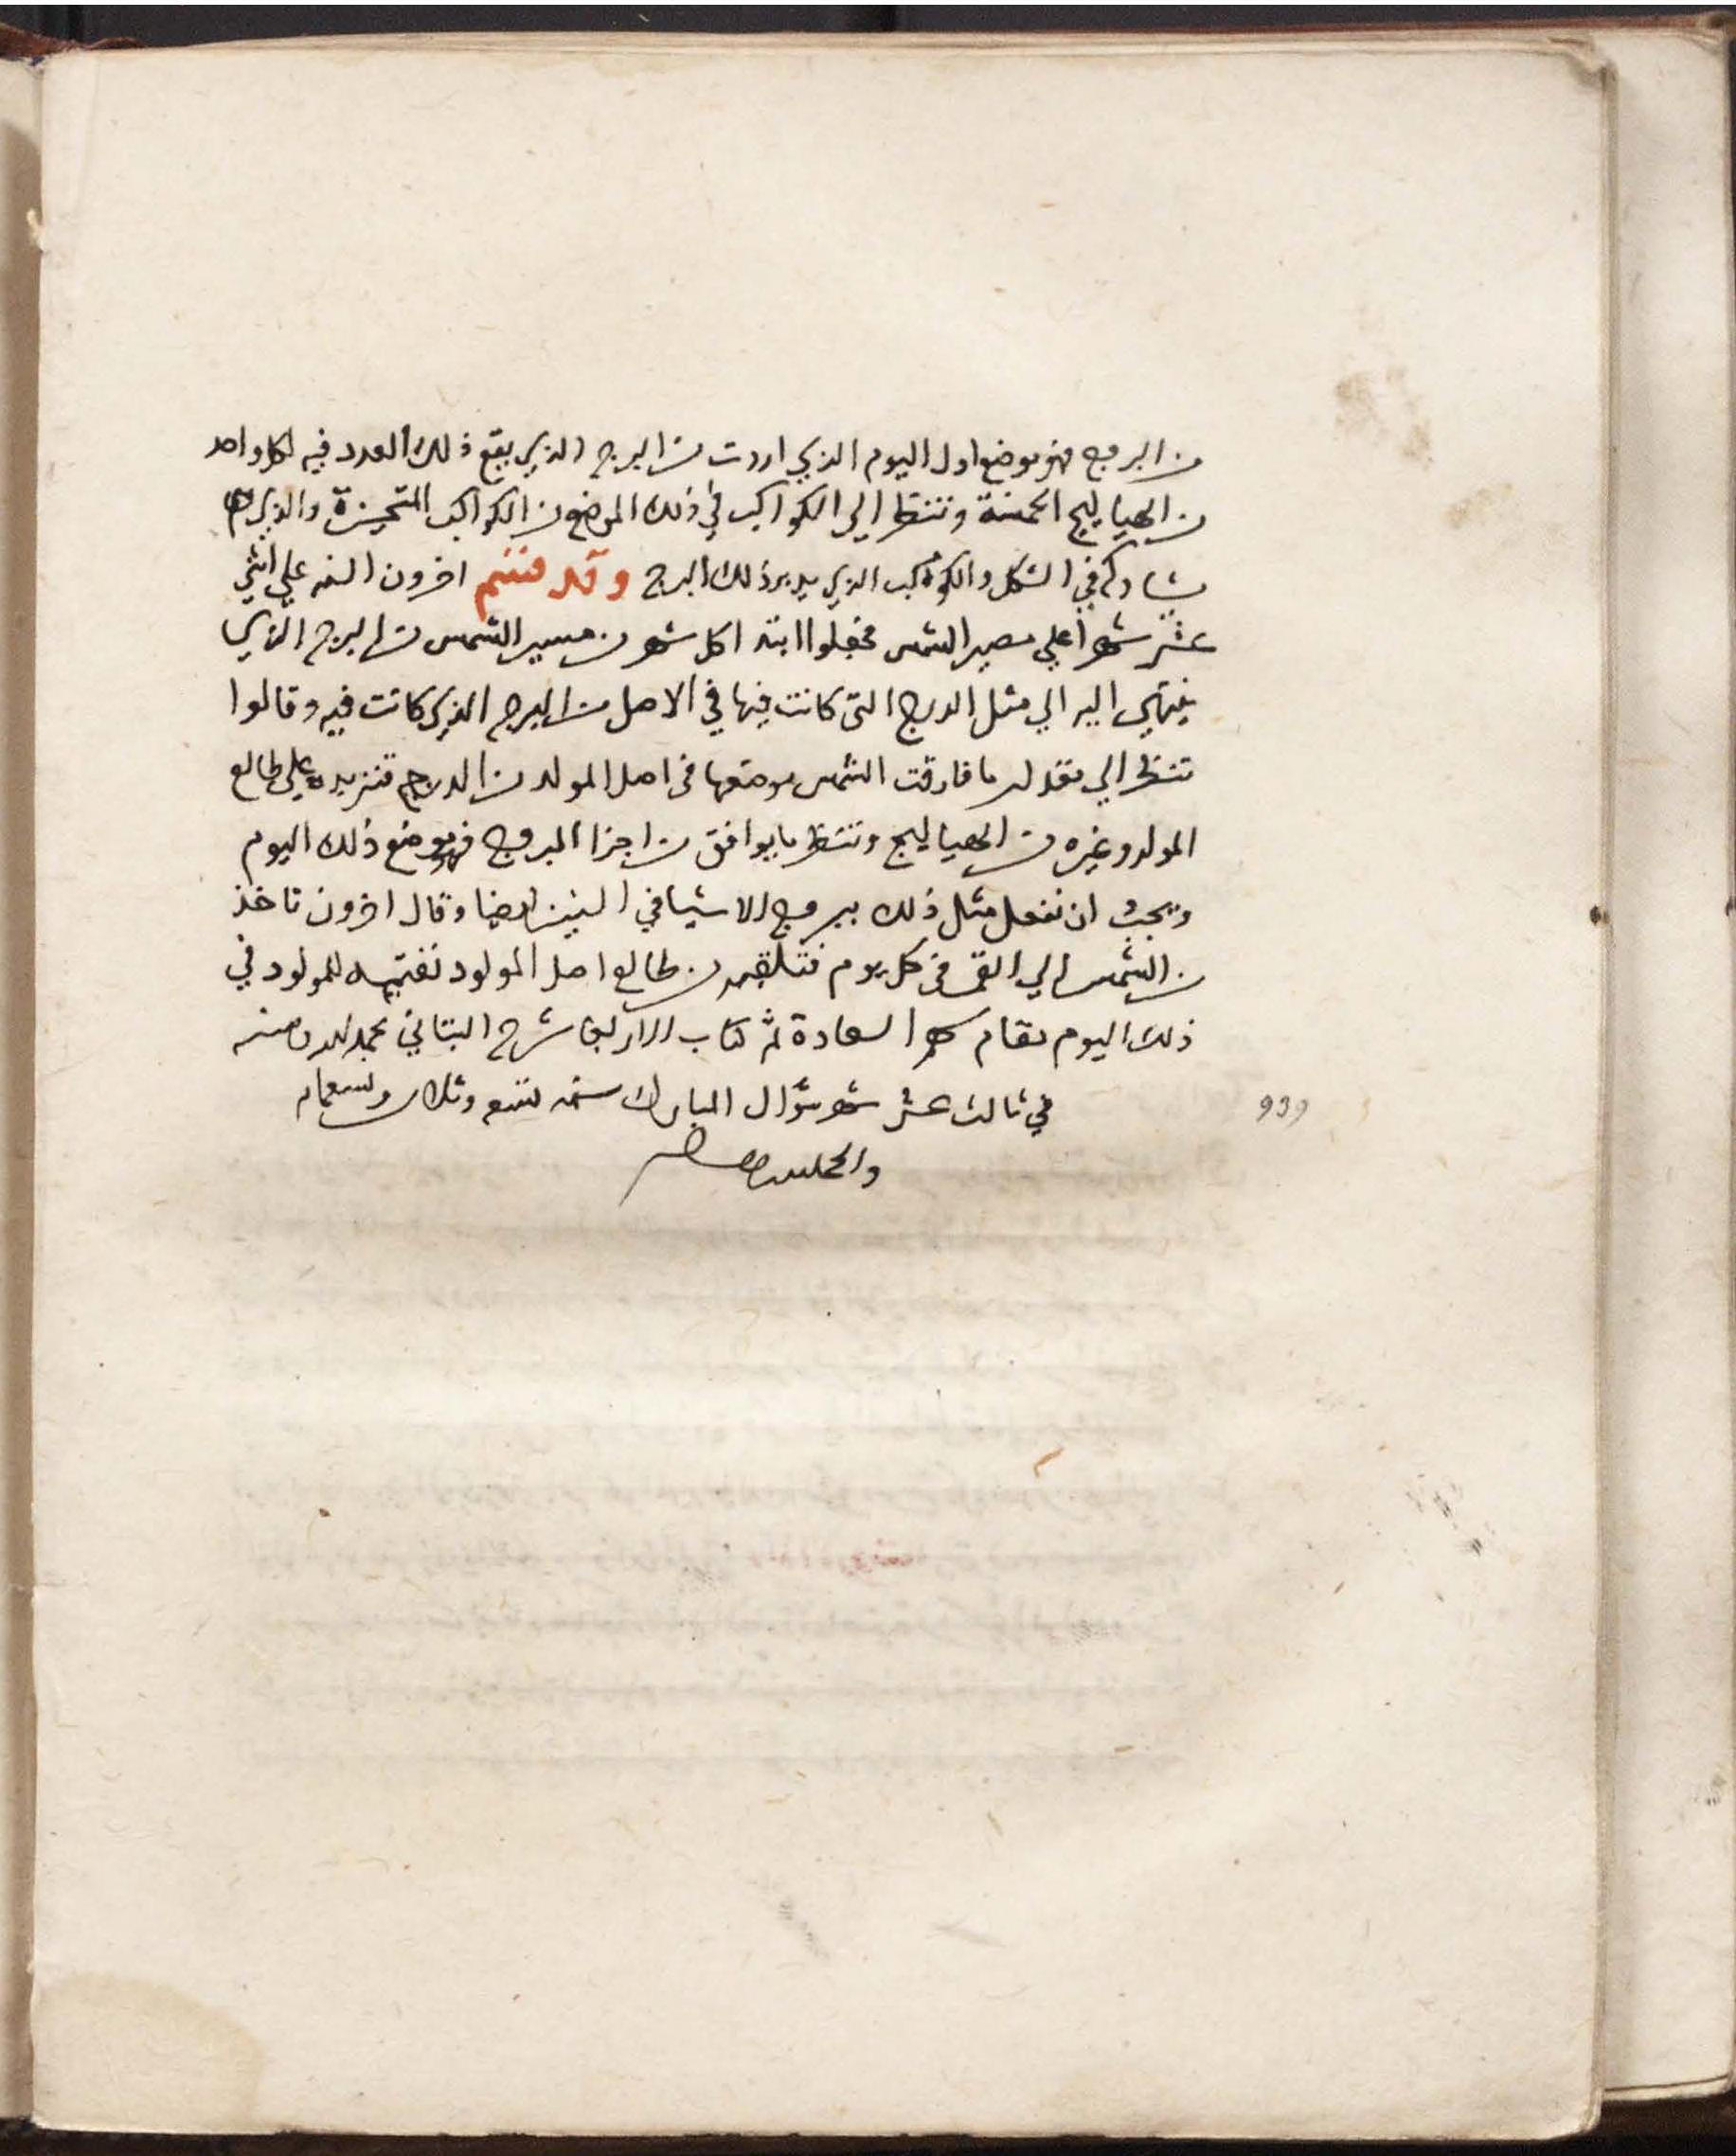 من البروج فهو موضع اول اليوم الذي اردت من البرج الذي يقع ذلك العدد فيه لكل واحد
من الهياليج الخمسة وتنظر الي الكواكب في ذلك الموضع من الكواكب المتحيزة والذي
يشاركه في الشكل والكوكب الذي يدبر ذلك البرج وقد قسم اخرون السنه علي اثني
عشر شهرا علي مصير الشمس فجعلوا ابتدا كل شهر من مسير الشمس من البرج الذي
ينتهي اليه الي مثل الدرج التي كانت فيها في الاصل من البرج الذي كانت فيه وقالوا
تنظر الي مقدار ما فارقت الشمس موضعها في اصل المولد من الدرج فتزيده علي طالع
المولد وغيره من الهياليج وتنظر ما يوافق من اجزا البروج فهو موضع ذلك اليوم
ويجب ان نفعل مثل ذلك ببروج الاشيا في السنين ايضا وقال اخرون تاخذ
من الشمس الي القمر في كل يوم فتلقيه من طالع اصل المولود فتقيمه للمولود في
ذلك اليوم مقام سهم السعادة تم كتاب الاربع شرح البتاني بحمد الله ومنه
في ثالث عشر شهر شوال المبارك سنه تسع وثلاثين وتسعمايه
والحمد لله
939